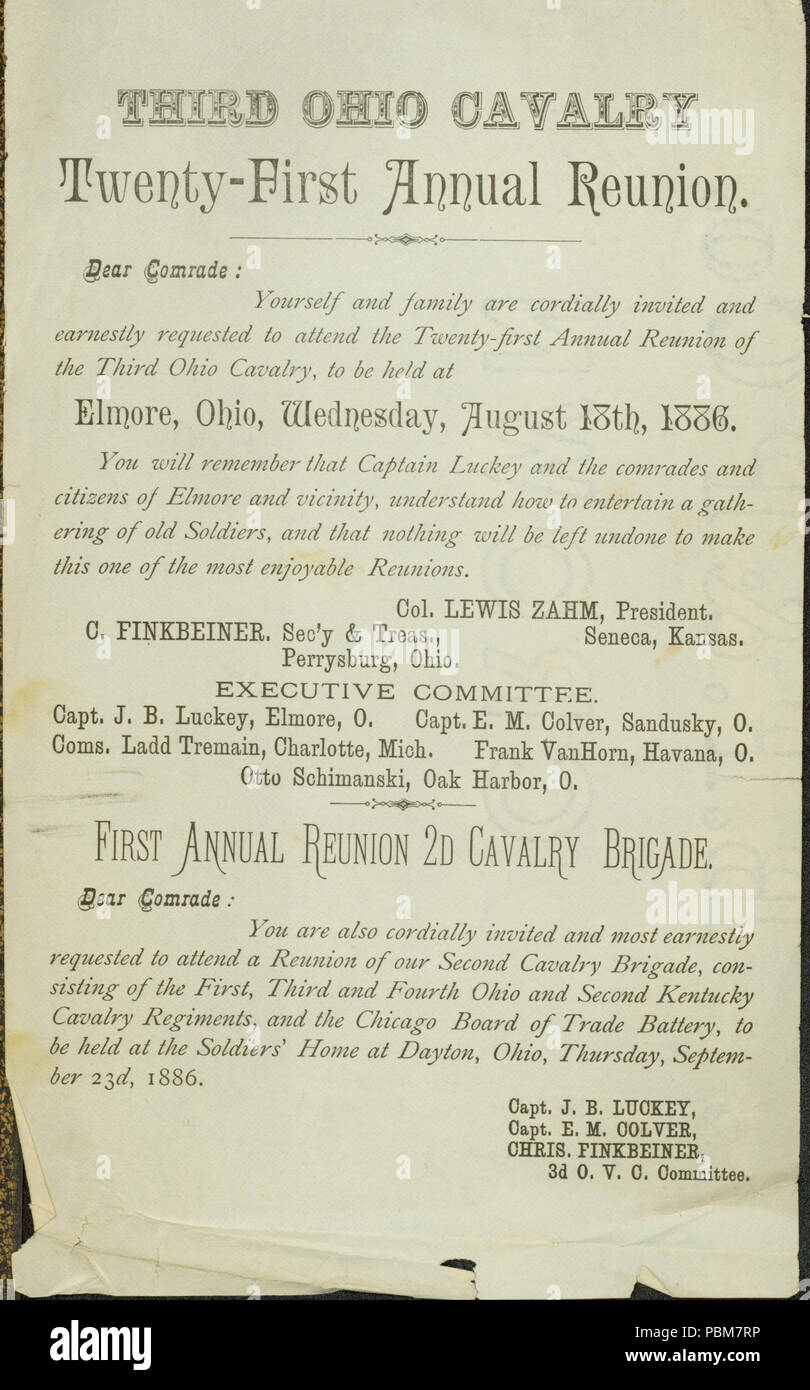 THIRD OHIO CAVALRY
Twenty-First Annual Reunion.
Dear Comrade :
Yourself and family are cordially invited and
earnestly requested to attend the Twenty-first Annual Reunion of
the Third Ohio Cavalry, to be held at
Elmore, Ohio, Wednesday, August 18th, 1886.
You will remember that Captain Luckey and the comrades and
citizens of Elmore and vicinity, understand how to entertain a gath-
ering of old Soldiers, and that nothing will be left undone to make
this one of the most enjoyable Reunions.
Col. LEWIS ZAHM, President.
C. FINKBEINER. Sec'y & Treas., Seneca, Kansas.
Perrysburg, Ohio.
EXECUTIVE COMMITTEE.
Capt. J. B. Luckey, Elmore, O. Capt. E. M. Colver, Sandusky, O.
Coms. Ladd Tremain, Charlotte, Mich. Frank VanHorn, Havana, O.
Otto Schimanski, Oak Harbor, O.
FIRST ANNUAL REUNION 2D CAVALRY BRIGADE.
Dear Comrade :
You are also cordially invited and most earnestly
requested to attend a Reunion of our Second Cavalry Brigade, con-
sisting of the First, Third and Fourth Ohio and Second Kentucky
Cavalry Regiments, and the Chicago Board of Trade Battery, to
be held at the Soldiers' Home at Dayton, Ohio, Thursday, Septem-
ber 23d, 1886.
Capt. J. B. LUCKEY,
Capt. E. M. COLVER,
CHRIS. FINKBEINER,
3d O. V. C. Committee.
alamy
Image ID: PBM7RP
www.alamy.com